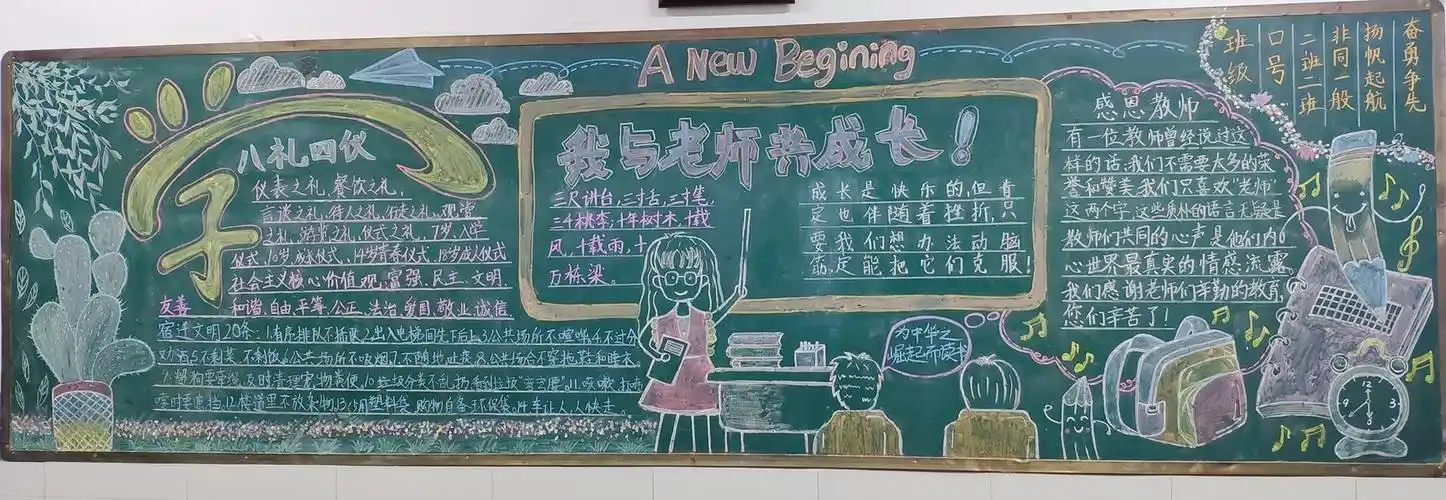 A New Begining
八礼四仪
仪表之礼、餐饮之礼、
言谈之礼、待人之礼、行走之礼、观赏
之礼、游览之礼、仪式之礼、7岁入学
仪式、10岁成长仪式、14岁青春仪式、18岁成人仪式
社会主义核心价值观:富强、民主、文明、
和谐、自由、平等、公正、法治、爱国、敬业、诚信、
友善
宿迁文明20条:1.有序排队不插队2.出入电梯间先下后上3.公共场所不喧哗4.不过分
劝酒5.不剩菜、不剩饭6.公共场所不吸烟7.不随地吐痰8.公共场合不穿拖鞋和睡衣
及时清理宠物粪便,10.垃圾分类不乱扔看到垃圾"弯弯腰"11.咳嗽、打喷
嚏时要遮挡12.楼道里不放杂物13.少用塑料袋、购物自备环保袋。14.车让人、人快走。
我与老师共成长!
三尺讲台,三寸舌,三寸笔,
三千桃李,十年树木,十载
风,十载雨,十
万栋梁。
成长是快乐的,但肯
定也伴随着挫折,只
要我们想办法动脑
筋,定能把它们克服!
为中华之
崛起而读书
感恩教师
有一位教师曾经说过这
样的话:我们不需要太多的荣
誉和赞美,我们只喜欢"老师"
这两个字,这些质朴的语言无疑是
教师们共同的心声是他们内
心世界最真实的情感流露,
我们感谢老师们辛勤的教育,
您们辛苦了!
班级
口号
二班二班
非同一般
扬帆起航
奋勇争先
12
3
6
9